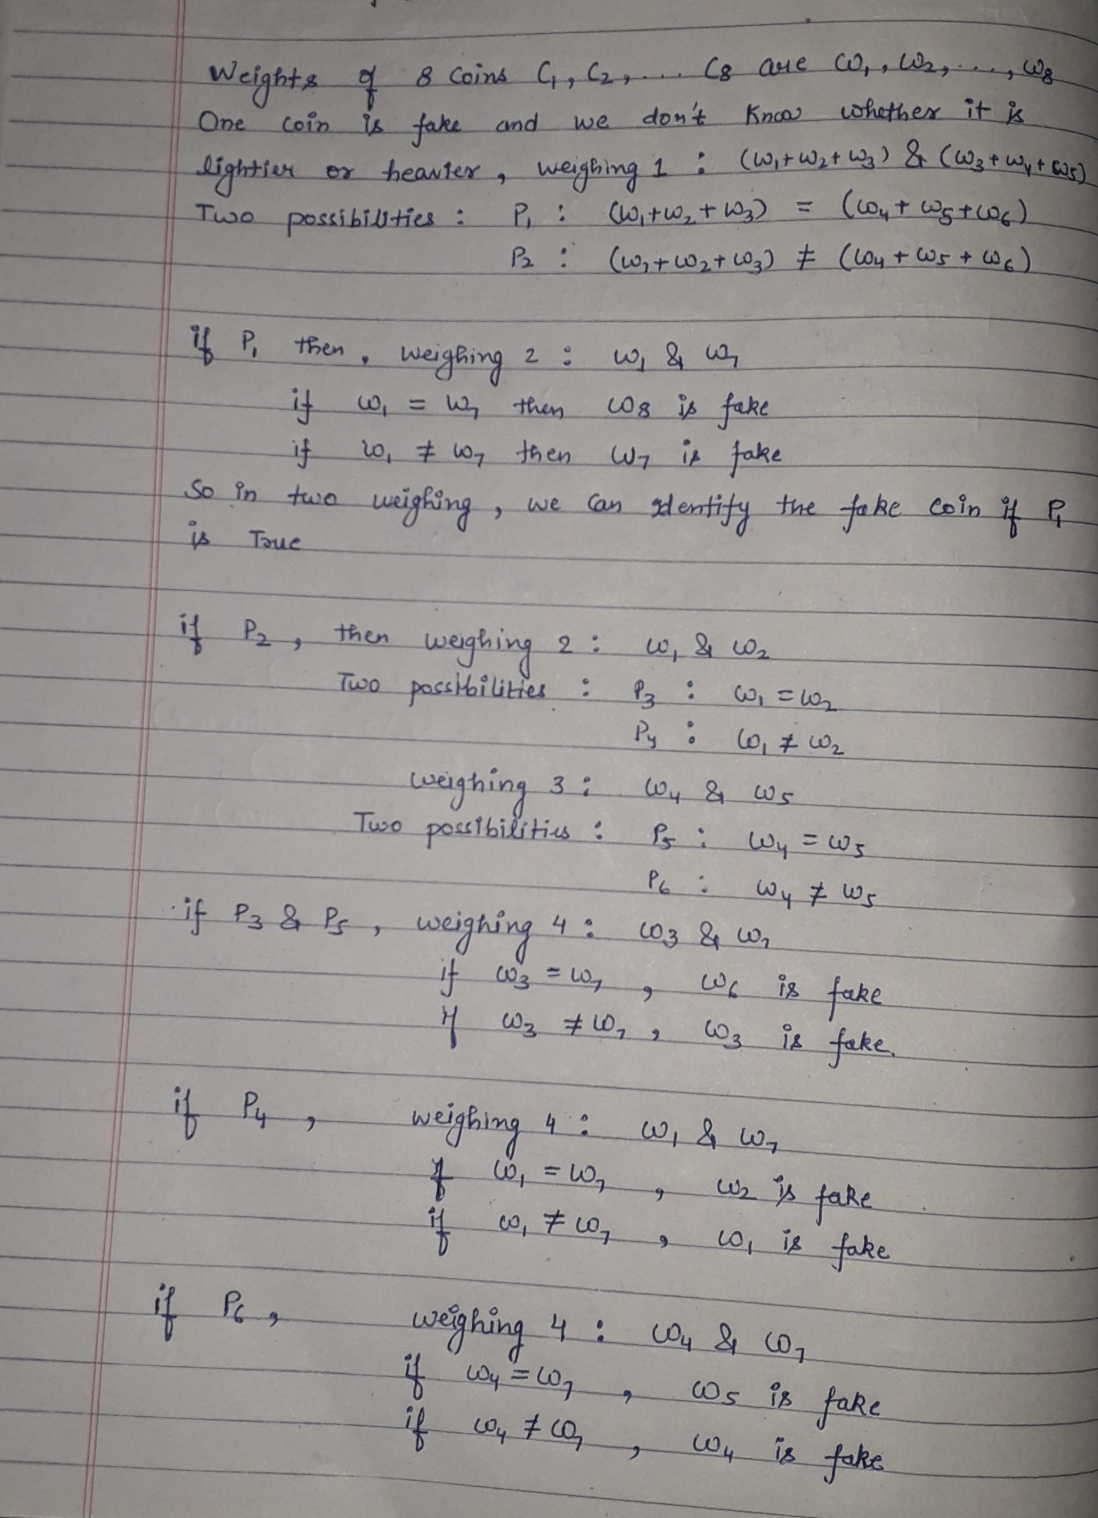 Weights of 8 Coins C1, C2, .... C8 are ω1, ω2, ...., ω8
One coin is fake and we don't know whether it is
lightier or heavier, weighing 1 : (ω1+ω2+ω3) & (ω3+ω4+ω5)
Two possibilities : P1 : (ω1+ω2+ω3) = (ω4+ω5+ω6)
P2 : (ω1+ω2+ω3) ≠ (ω4+ω5+ω6)
if P1 then, weighing 2 : ω1 & ω7
if ω1 = ω7 then ω8 is fake
if ω1 ≠ ω7 then ω7 is fake
So in two weighing, we can identify the fake coin if P1
is True
if P2, then weighing 2 : ω1 & ω2
Two possibilities : P3 : ω1 = ω2
P4 : ω1 ≠ ω2
weighing 3 : ω4 & ω5
Two possibilities : P5 : ω4 = ω5
P6 : ω4 ≠ ω5
if P3 & P5, weighing 4 : ω3 & ω7
if ω3 = ω7, ω6 is fake
if ω3 ≠ ω7, ω3 is fake.
if P4, weighing 4 : ω1 & ω7
if ω1 = ω7, ω2 is fake
if ω1 ≠ ω7, ω1 is fake
if P6, weighing 4 : ω4 & ω7
if ω4 = ω7, ω5 is fake
if ω4 ≠ ω7, ω4 is fake